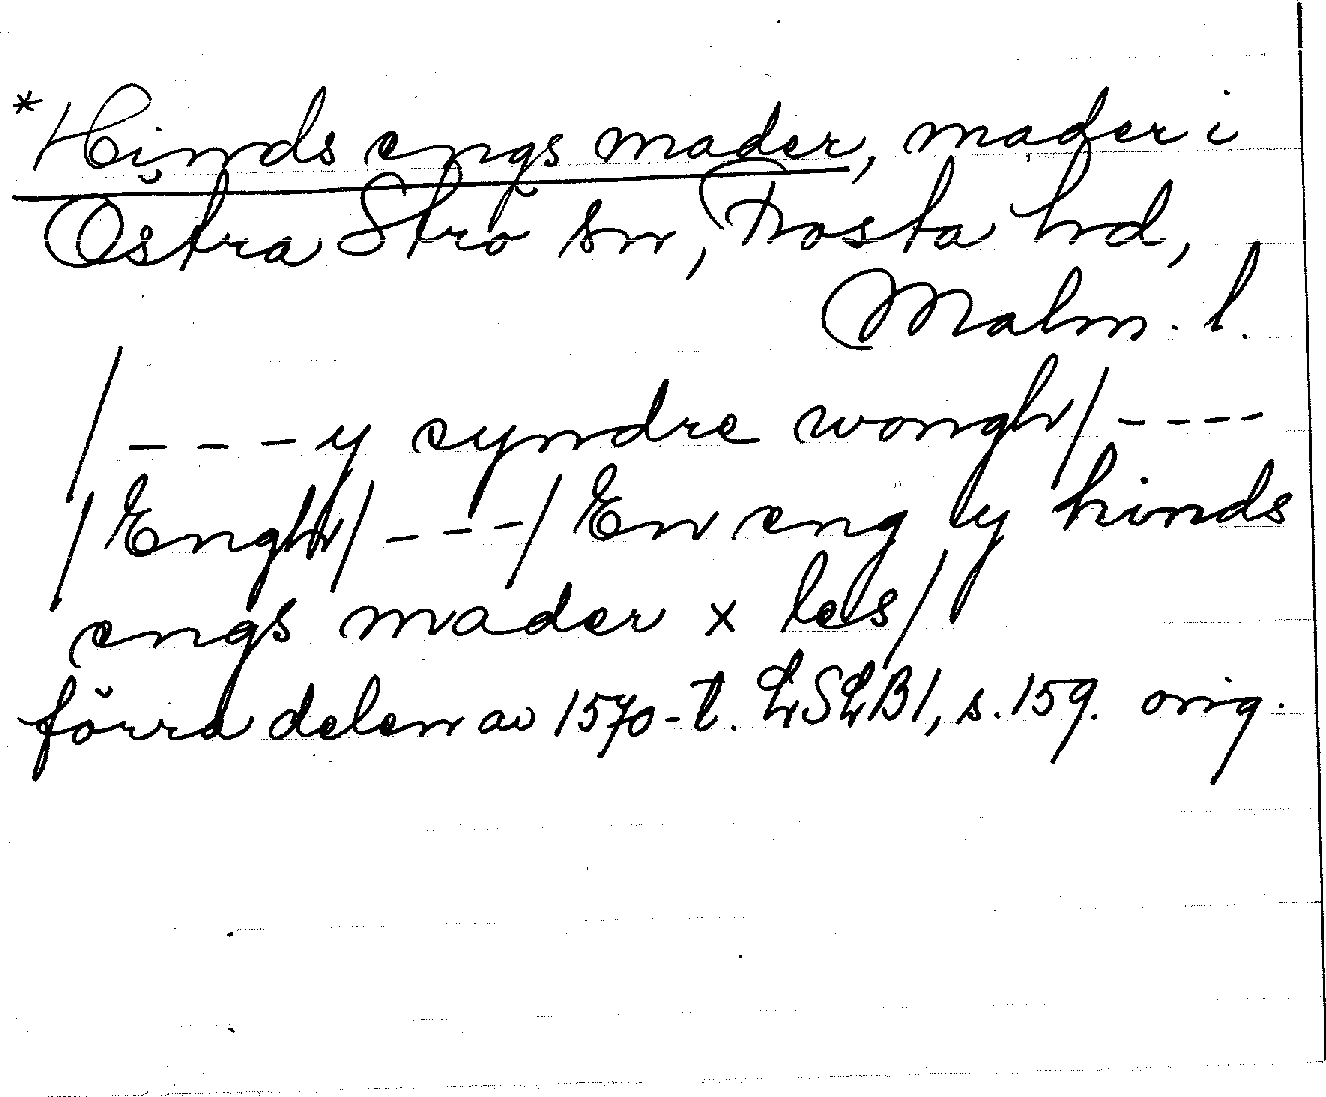 *Hinds engs mader, mader i
Östra Strö sn, Frosta hd,
Malm. l.
/ - - - y syndre wongh/ - - - -
/Engh/ - - - / En eng y hinds
engs mader x les/
förra delen av 1570-t. LSLB1, s. 159. orig.